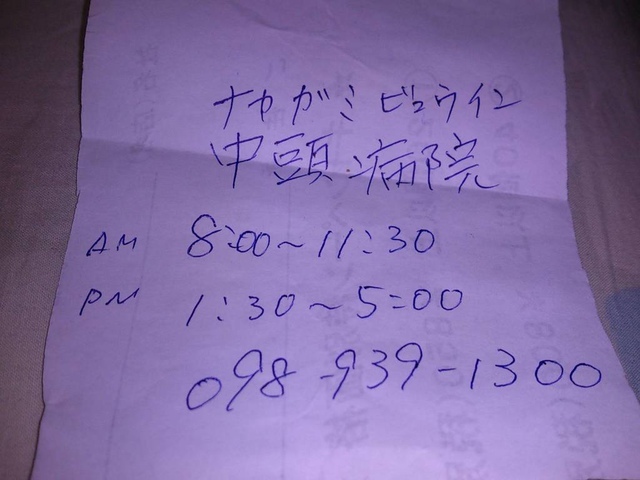 ナカガミビョウイン
中頭病院
AM 8:00~11:30
PM 1:30~5:00
098-939-1300